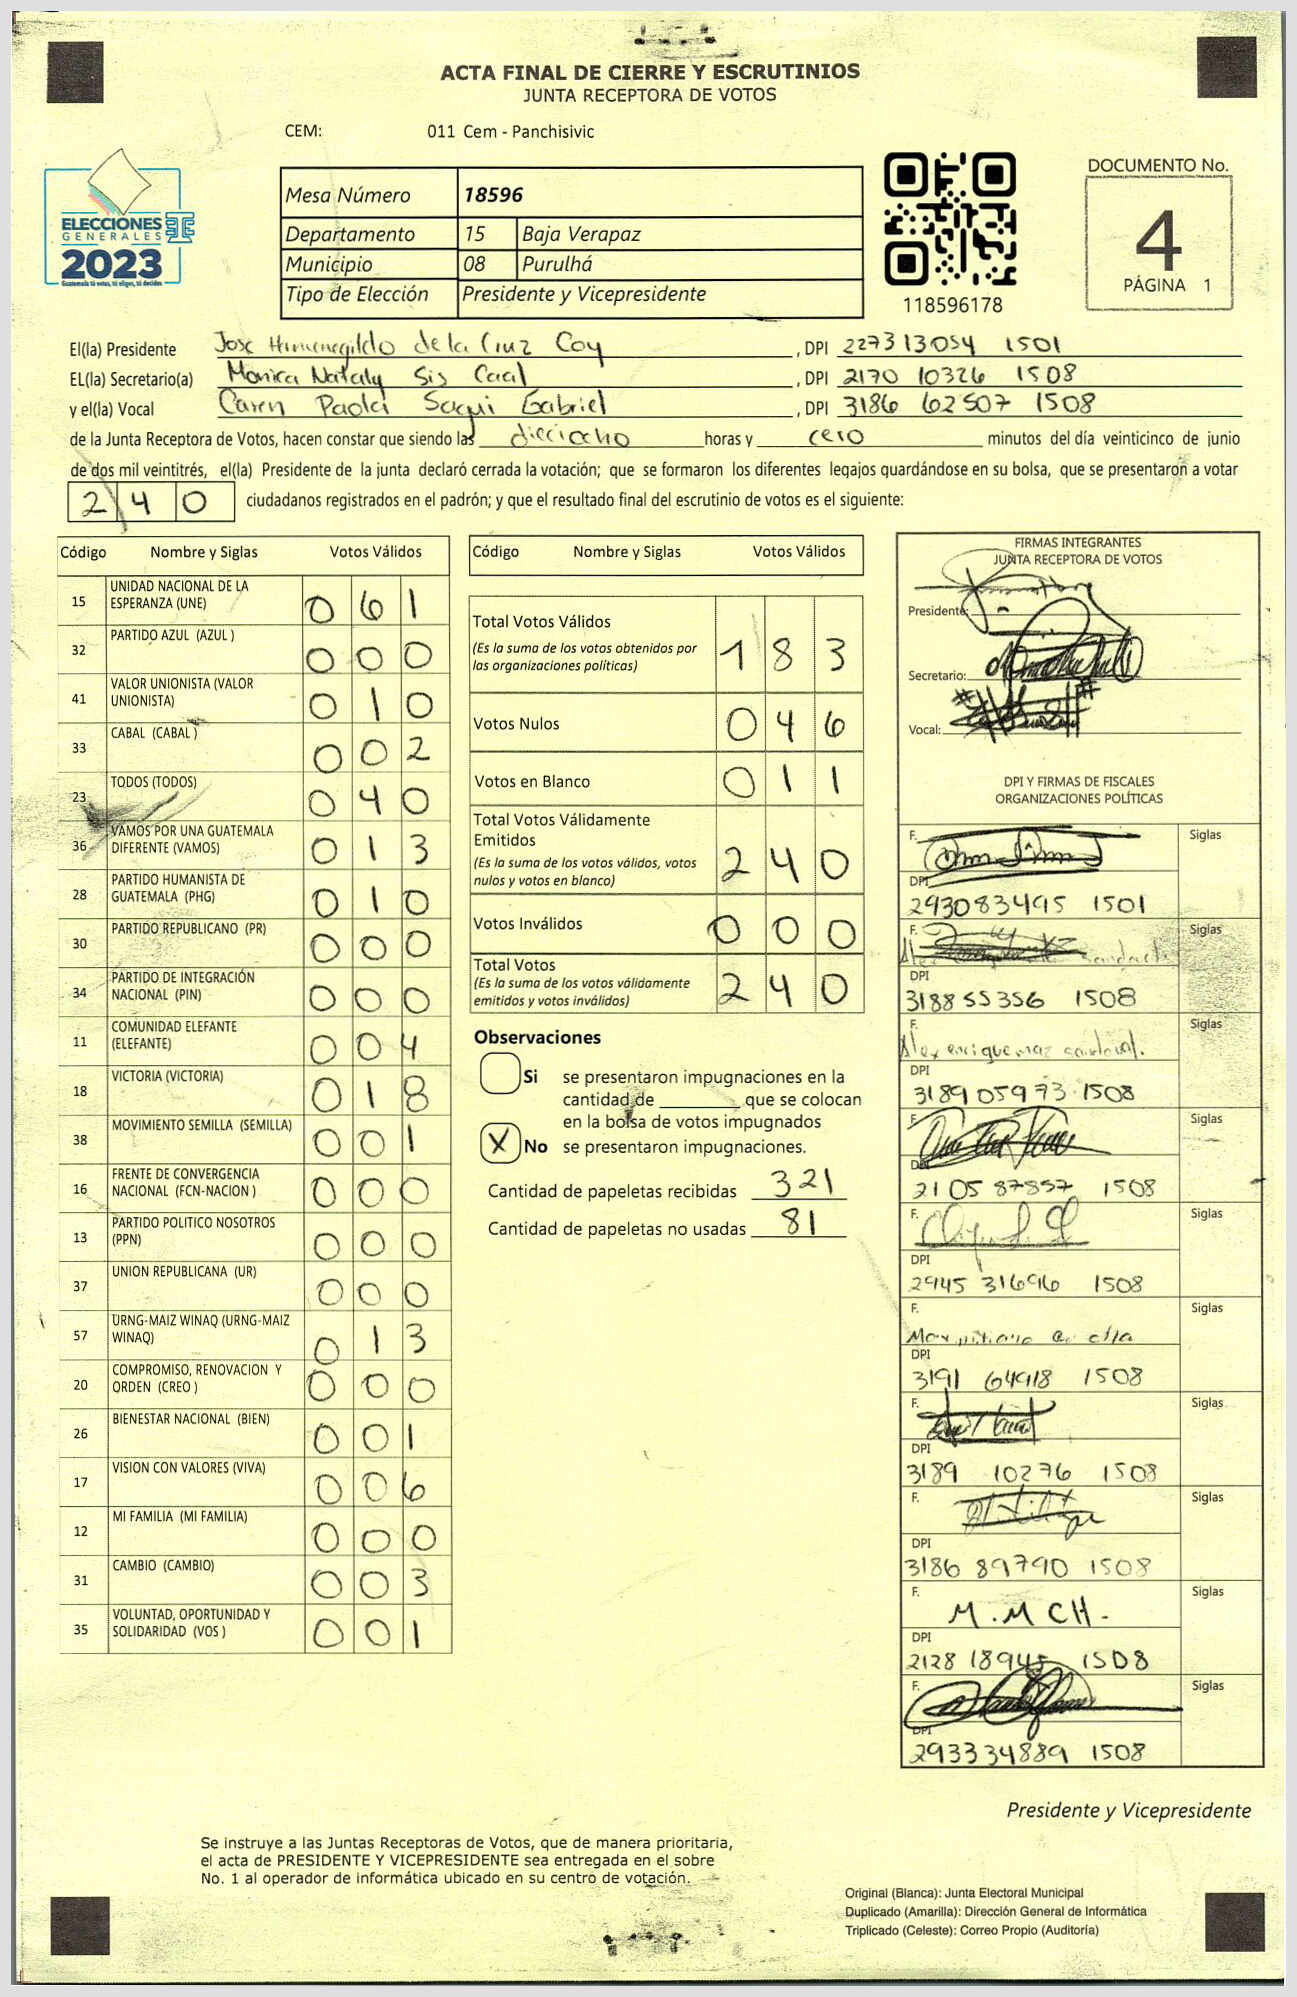 ACTA FINAL DE CIERRE Y ESCRUTINIOS
JUNTA RECEPTORA DE VOTOS
CEM: 011 Cem - Panchisivic
ELECCIONES
GENERALES
2023
Guatemala tú votas, tú eliges, tú decides
Mesa Número 18596
Departamento 15 Baja Verapaz
Municipio 08 Purulhá
Tipo de Elección Presidente y Vicepresidente
118596178
DOCUMENTO No.
4
PÁGINA 1
El(la) Presidente Jose Hermenegildo de la Cruz Coy , DPI 227313054 1501
EL(la) Secretario(a) Monica Nataly Sis Caal , DPI 2170 10326 1508
y el(la) Vocal Caren Paola Saqui Gabriel , DPI 3186 62507 1508
de la Junta Receptora de Votos, hacen constar que siendo las dieciocho horas y cero minutos del día veinticinco de junio
de dos mil veintitrés, el(la) Presidente de la junta declaró cerrada la votación; que se formaron los diferentes legajos quardándose en su bolsa, que se presentaron a votar
240 ciudadanos registrados en el padrón; y que el resultado final del escrutinio de votos es el siguiente:
Código Nombre y Siglas Votos Válidos
15 UNIDAD NACIONAL DE LA ESPERANZA (UNE) 0 6 1
32 PARTIDO AZUL (AZUL ) 0 0 0
41 VALOR UNIONISTA (VALOR UNIONISTA) 0 1 0
33 CABAL (CABAL ) 0 0 2
23 TODOS (TODOS) 0 4 0
36 VAMOS POR UNA GUATEMALA DIFERENTE (VAMOS) 0 1 3
28 PARTIDO HUMANISTA DE GUATEMALA (PHG) 0 1 0
30 PARTIDO REPUBLICANO (PR) 0 0 0
34 PARTIDO DE INTEGRACIÓN NACIONAL (PIN) 0 0 0
11 COMUNIDAD ELEFANTE (ELEFANTE) 0 0 4
18 VICTORIA (VICTORIA) 0 1 8
38 MOVIMIENTO SEMILLA (SEMILLA) 0 0 1
16 FRENTE DE CONVERGENCIA NACIONAL (FCN-NACION ) 0 0 0
13 PARTIDO POLITICO NOSOTROS (PPN) 0 0 0
37 UNION REPUBLICANA (UR) 0 0 0
57 URNG-MAIZ WINAQ (URNG-MAIZ WINAQ) 0 1 3
20 COMPROMISO, RENOVACION Y ORDEN (CREO ) 0 0 0
26 BIENESTAR NACIONAL (BIEN) 0 0 1
17 VISION CON VALORES (VIVA) 0 0 6
12 MI FAMILIA (MI FAMILIA) 0 0 0
31 CAMBIO (CAMBIO) 0 0 3
35 VOLUNTAD, OPORTUNIDAD Y SOLIDARIDAD (VOS ) 0 0 1
Código Nombre y Siglas Votos Válidos
Total Votos Válidos 1 8 3
(Es la suma de los votos obtenidos por
las organizaciones políticas)
Votos Nulos 0 4 6
Votos en Blanco 0 1 1
Total Votos Válidamente
Emitidos 2 4 0
(Es la suma de los votos válidos, votos
nulos y votos en blanco)
Votos Inválidos 0 0 0
Total Votos 2 4 0
(Es la suma de los votos válidamente
emitidos y votos inválidos)
Observaciones
Si se presentaron impugnaciones en la
cantidad de que se colocan
en la bolsa de votos impugnados
X No se presentaron impugnaciones.
Cantidad de papeletas recibidas 321
Cantidad de papeletas no usadas 81
FIRMAS INTEGRANTES
JUNTA RECEPTORA DE VOTOS
Presidente:
Secretario:
Vocal:
DPI Y FIRMAS DE FISCALES
ORGANIZACIONES POLÍTICAS
F. Siglas
DPI
293083495 1501
F. Siglas
DPI
3188 55356 1508
F. Siglas
Alex enrique maz sandoval.
DPI
3189 05973 1508
F. Siglas
DPI
2105 87857 1508
F. Siglas
DPI
2945 31696 1508
F. Siglas
DPI
3191 64918 1508
F. Siglas
DPI
3189 10276 1508
F. Siglas
DPI
3186 89790 1508
F. Siglas
M.MCH.
DPI
2128 18945 1508
F. Siglas
DPI
293334889 1508
Presidente y Vicepresidente
Se instruye a las Juntas Receptoras de Votos, que de manera prioritaria,
el acta de PRESIDENTE Y VICEPRESIDENTE sea entregada en el sobre
No. 1 al operador de informática ubicado en su centro de votación.
Original (Blanca): Junta Electoral Municipal
Duplicado (Amarilla): Dirección General de Informática
Triplicado (Celeste): Correo Propio (Auditoría)